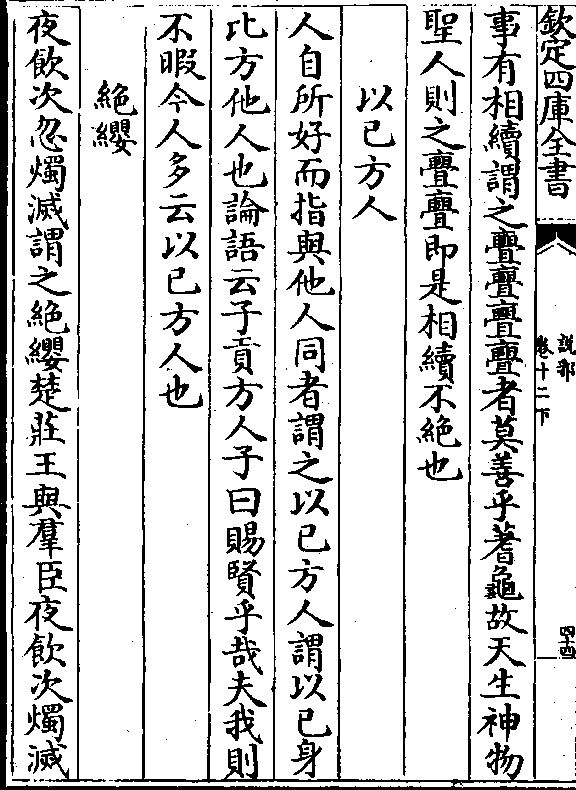 欽定四庫全書
説郛
卷十二下
四十四
事有相續謂之亹亹亹亹者莫善乎蓍龜故天生神物
聖人則之亹亹即是相續不絶也
以已方人
人自所好而指與他人同者謂之以已方人謂以已身
比方他人也論語云子貢方人子曰賜賢乎哉夫我則
不暇今人多云以已方人也
絶纓
夜飲次忽燭滅謂之絶纓楚莊王與羣臣夜飲次燭滅